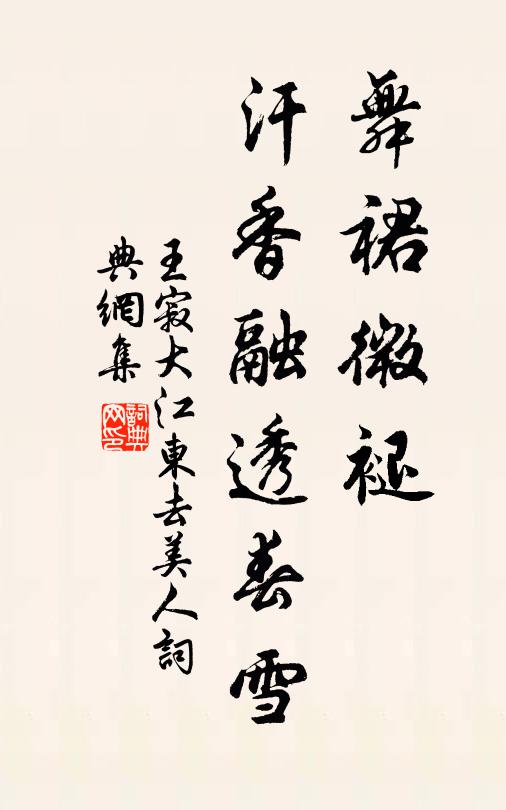 舞裙微褪
汗香融透春雪
王寂大江東去美人詞
典網集
詞典网印